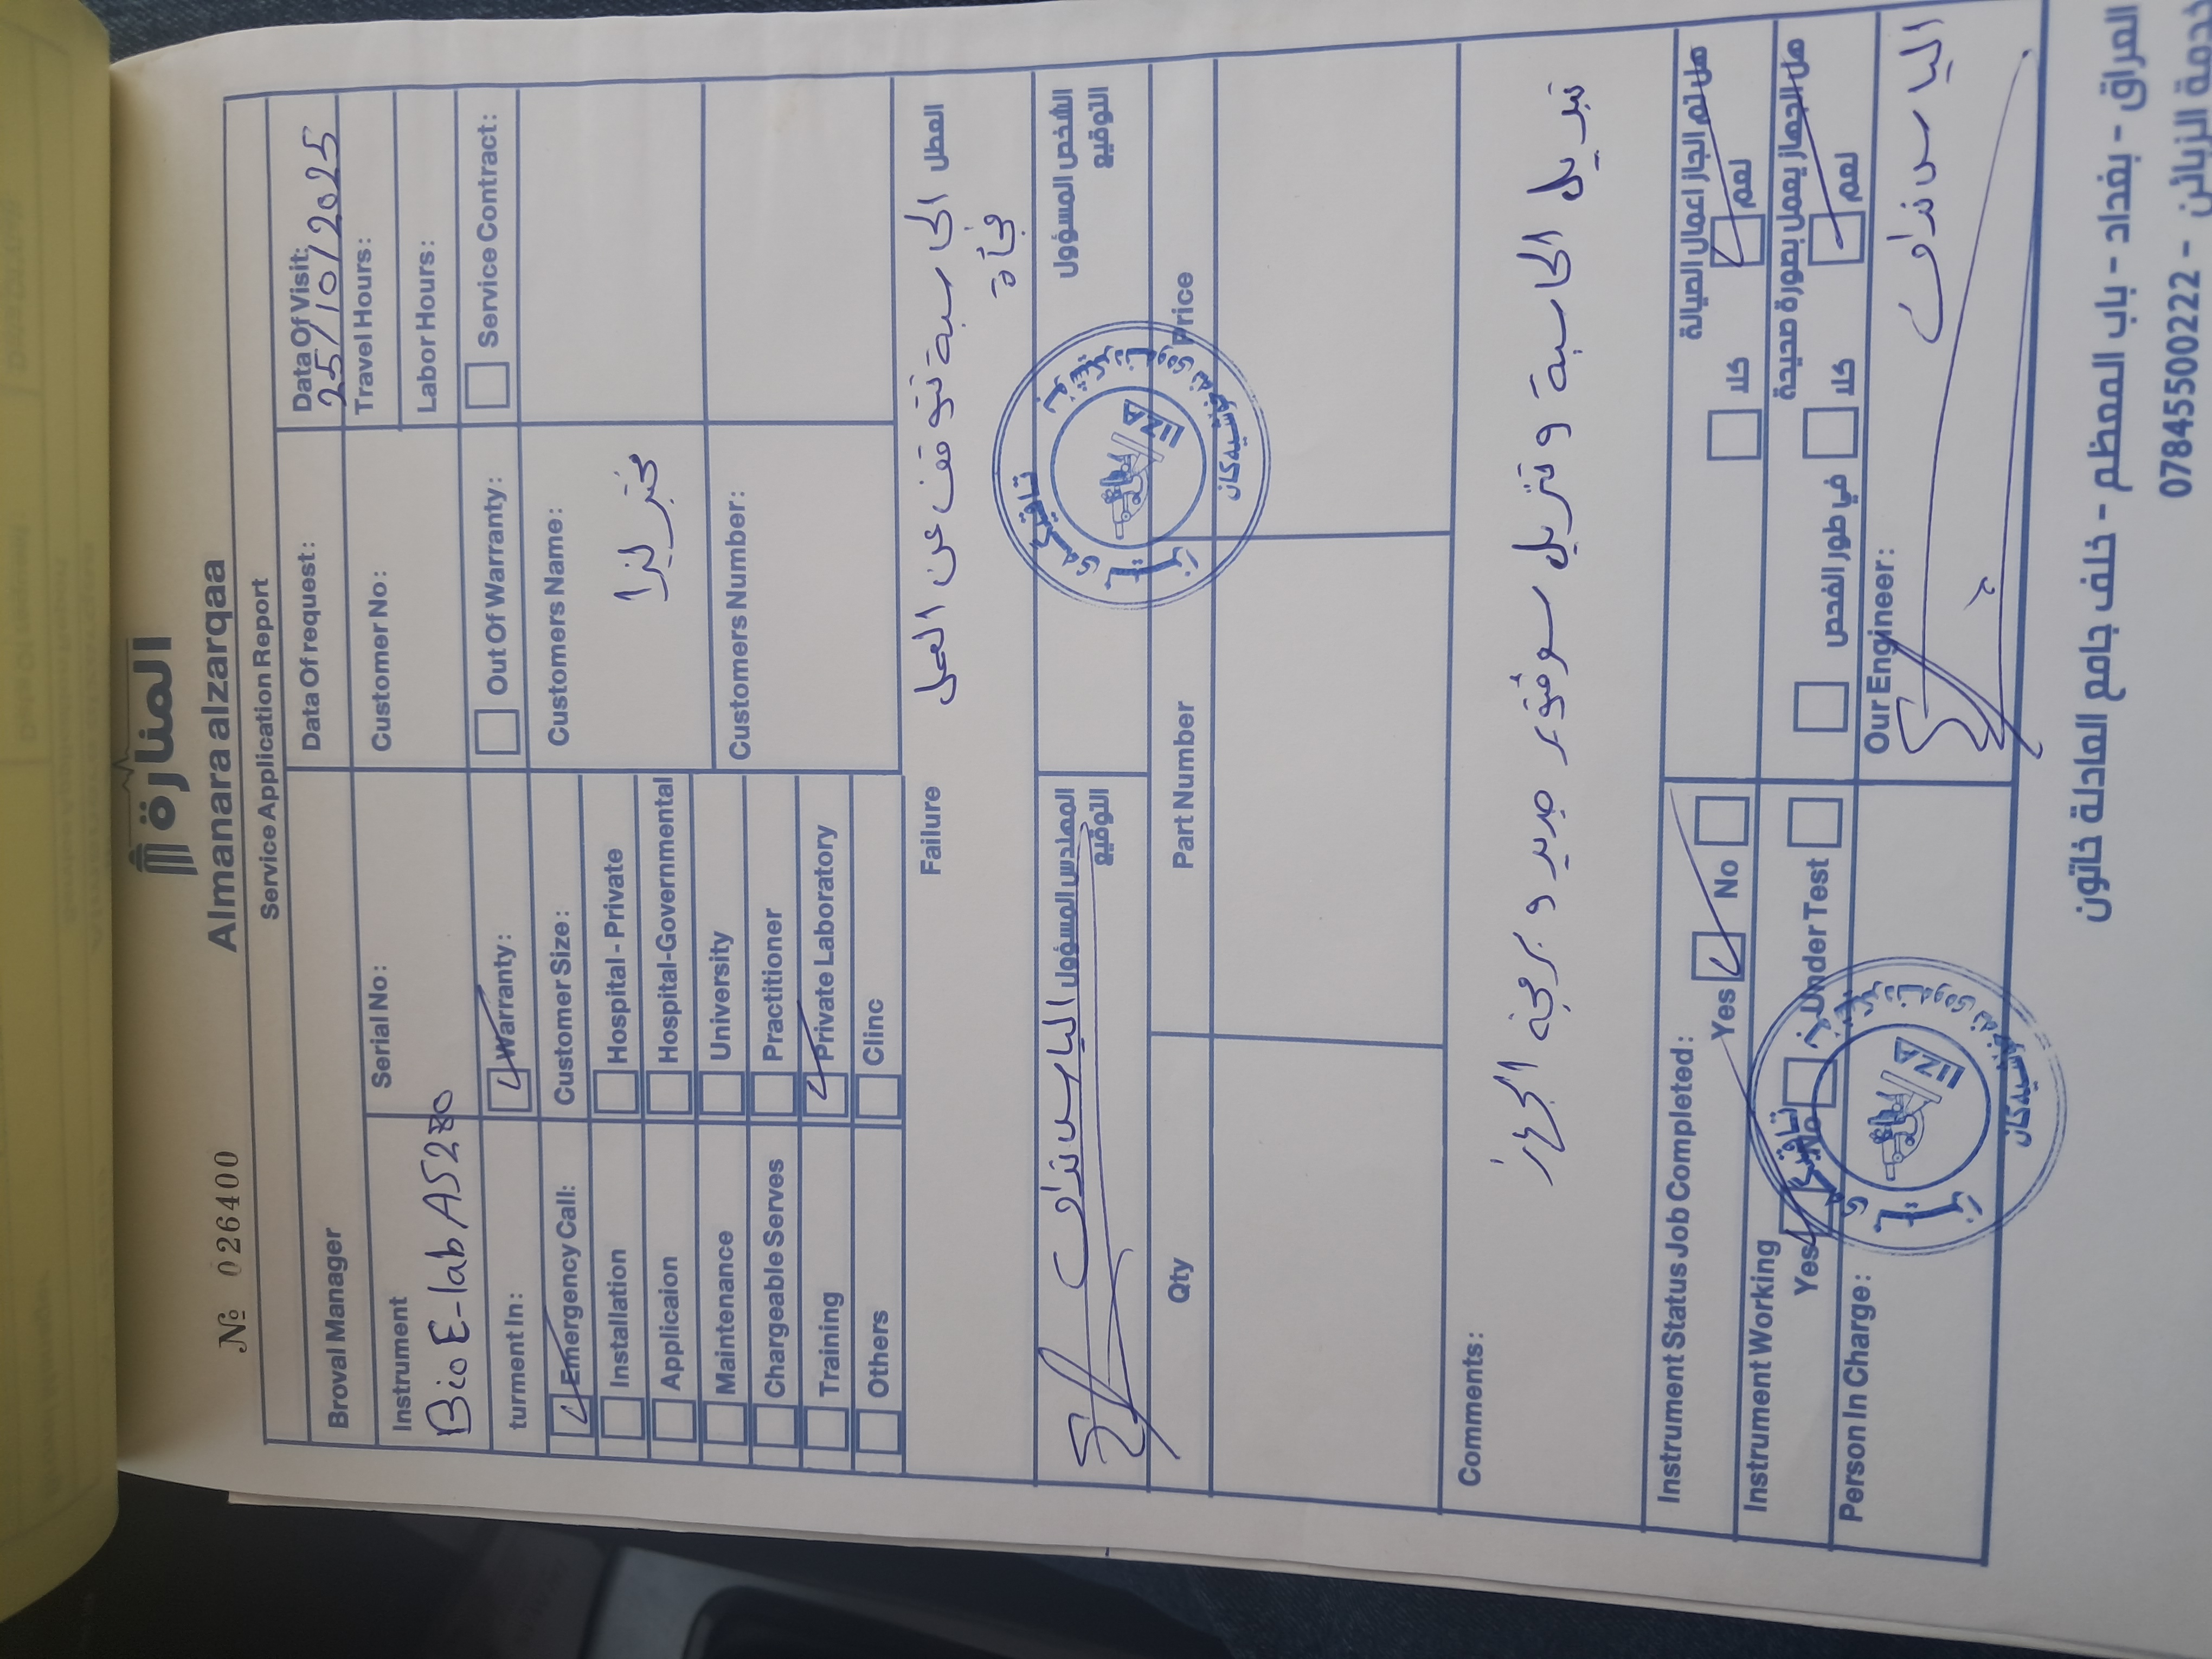 № 026400
المنارة
Almanara alzarqaa
Service Application Report
Broval Manager
Data Of request:
Data Of Visit:
25/10/2025
Instrument
Bio E-lab AS280
Serial No:
Customer No:
Travel Hours:
Labor Hours:
turment In:
Warranty:
Out Of Warranty:
Service Contract:
Emergency Call:
Customer Size:
Customers Name:
مختبر ليزا
Installation
Hospital - Private
Applicaion
Hospital-Governmental
Maintenance
University
Customers Number:
Chargeable Serves
Practitioner
Training
Private Laboratory
Others
Clinc
Failure
العطل
الحاسبة تتوقف عن العمل
فجأة
المهندس المسؤول
التوقيع
الياس
الشخص المسؤول
التوقيع
LEZA
Qty
Part Number
Price
Comments:
تبديل الحاسبة و تنزيل سوفتوير جديد و برمجة الجهاز
Instrument Status Job Completed:
Yes
No
هل تم انجاز اعمال الصيانة
كلا
نعم
Instrument Working
Yes
No
Under Test
هل الجهاز يعمل بصورة صحيحة
في طور الفحص
كلا
نعم
Person In Charge:
LEZA
Our Engineer:
الياس
العراق - بغداد - باب المعظم - خلف جامع العادلة خاتون
خدمة الزبائن - 07845500222